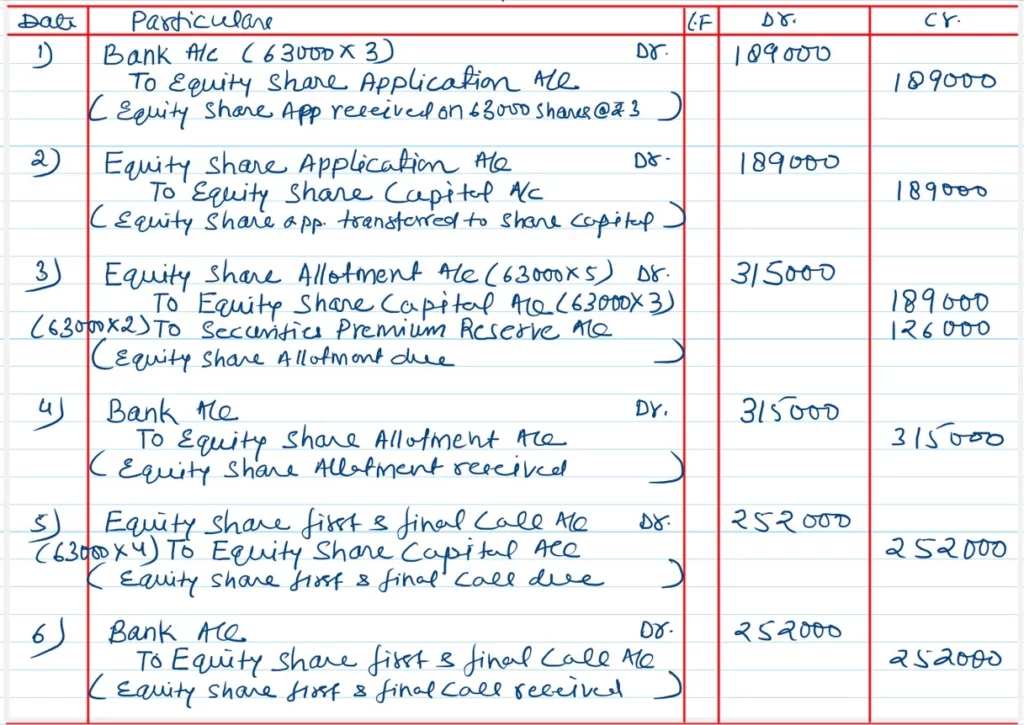 Date Particulars L.F Dr. Cr.
1) Bank A/c (63000 X 3) Dr. 189000
To Equity Share Application A/c 189000
( Equity Share App received on 63000 shares @ ₹3 )
2) Equity Share Application A/c Dr. 189000
To Equity Share Capital A/c 189000
( Equity Share app. transferred to share capital )
3) Equity Share Allotment A/c (63000X5) Dr. 315000
To Equity Share Capital A/c (63000X3) 189000
(63000X2) To Securities Premium Reserve A/c 126000
( Equity Share Allotment due )
4) Bank A/c Dr. 315000
To Equity Share Allotment A/c 315000
( Equity Share Allotment received )
5) Equity Share first & final Call A/c Dr. 252000
(63000X4) To Equity Share Capital A/c 252000
( Equity share first & final Call due )
6) Bank A/c Dr. 252000
To Equity Share first & final Call A/c 252000
( Equity Share first & final Call received )